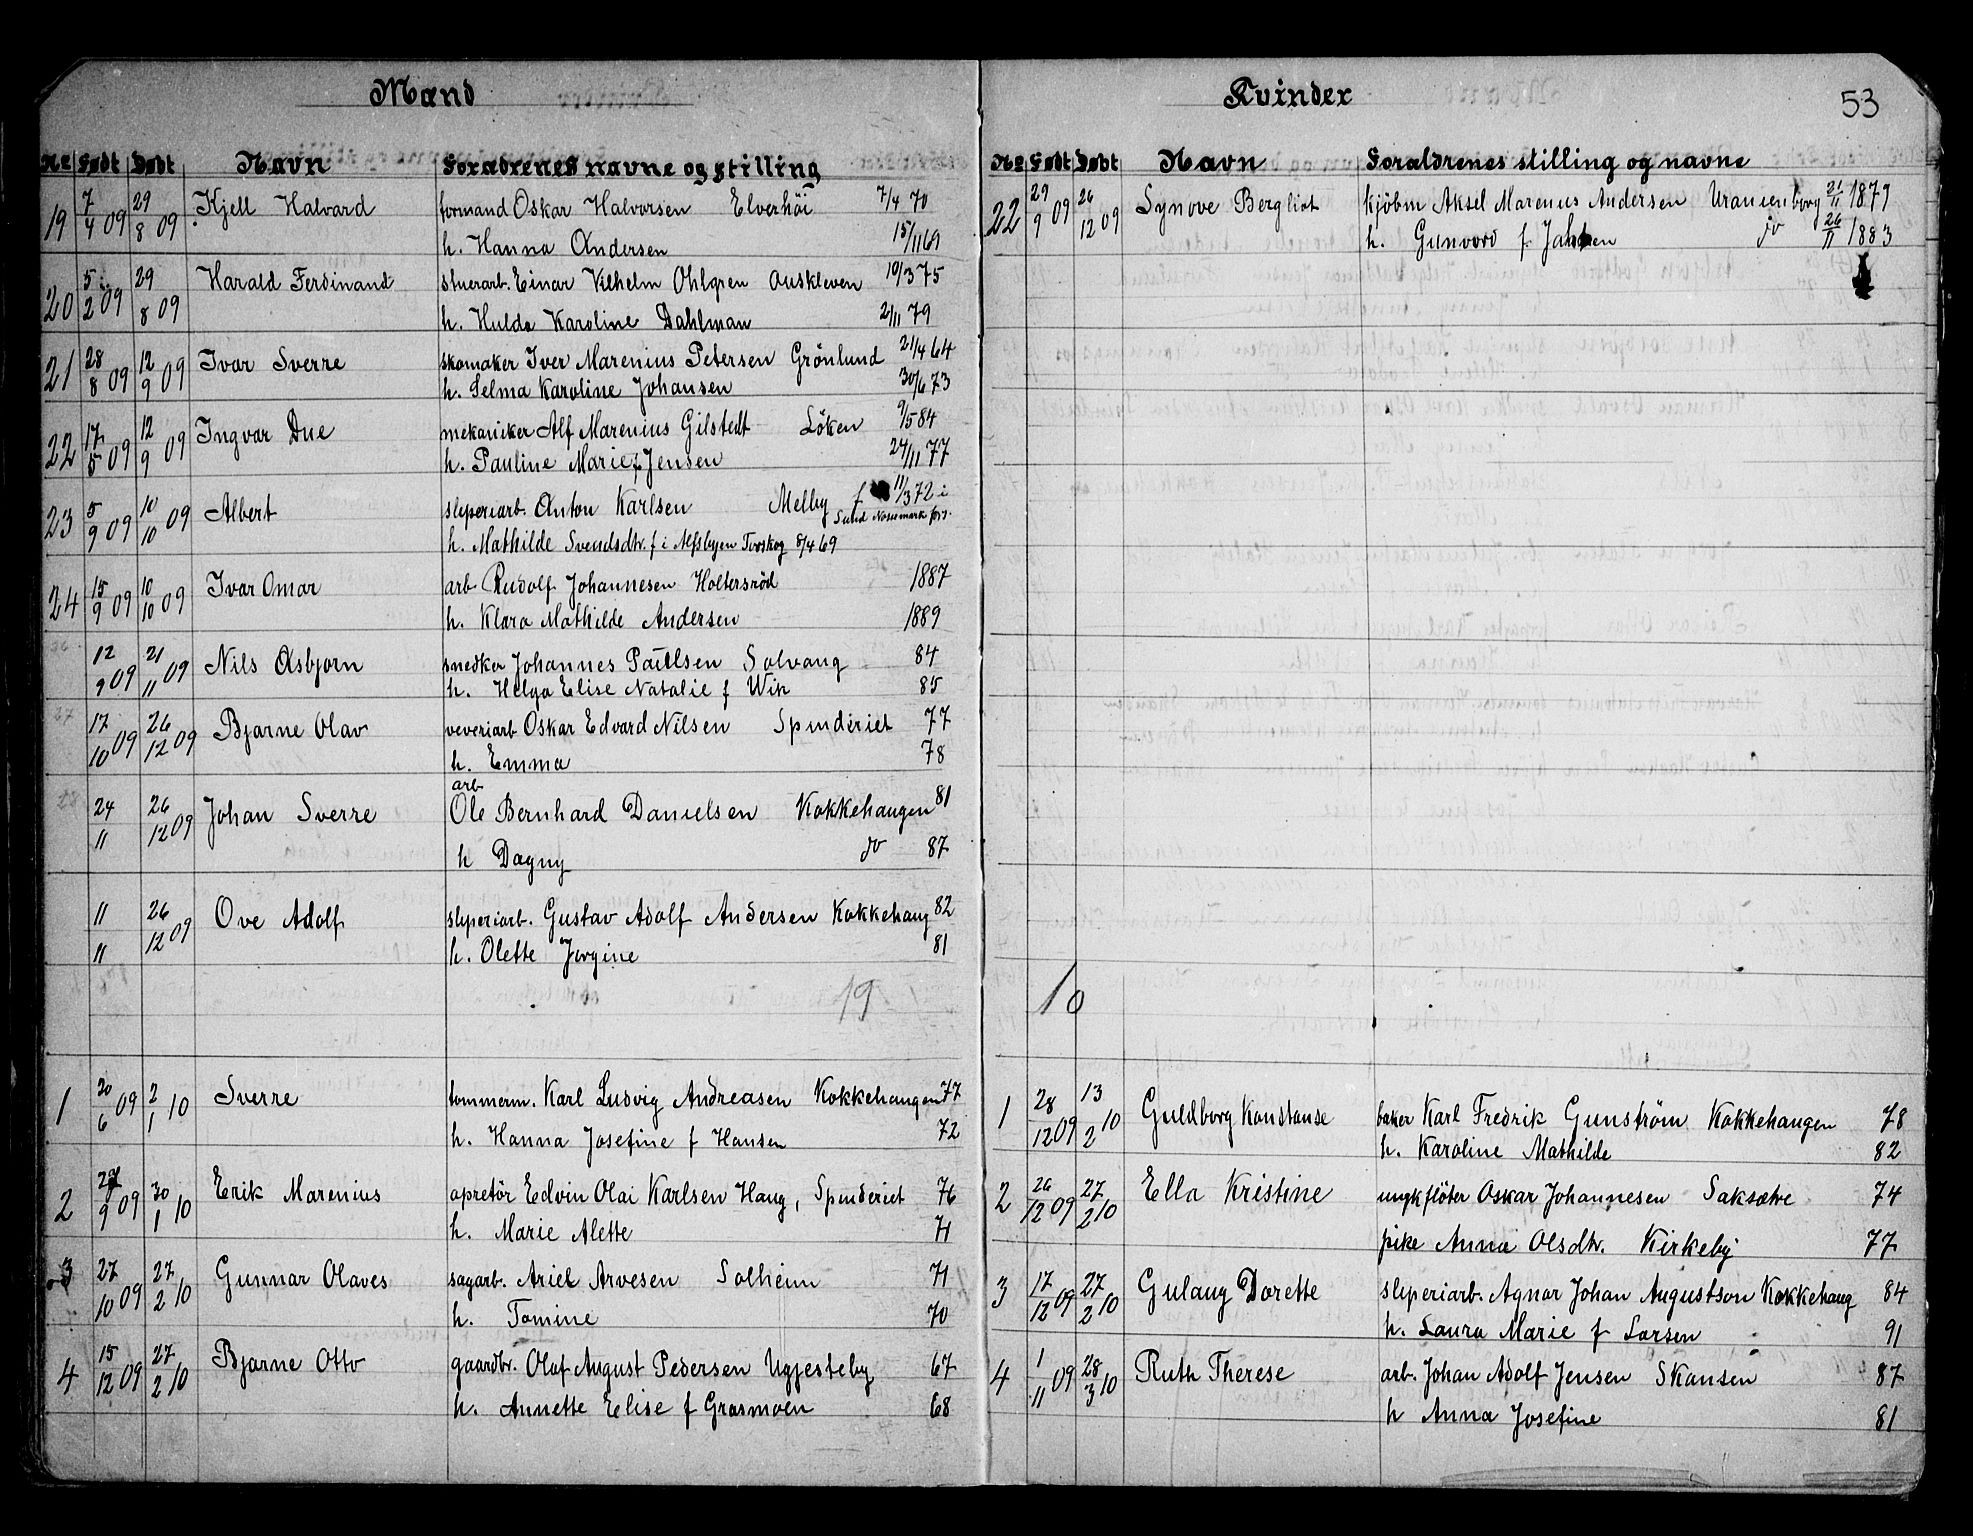 Mænd
№ Født Døbt Navn Forældrenes navne og stilling
19 7/4 09 29/8 09 Kjell Halvard formand Oskar Halvorsen Elverhöi 7/4 70
h. Hanna Andersen 15/11 69
20 5/2 09 29/8 09 Harald Ferdinand stuerarb. Einar Vilhelm Ohlgren Auskleven 10/3 75
h. Hulda Karoline Dahlman 2/11 79
21 28/8 09 12/9 09 Ivar Sverre skomaker Iver Marenius Petersen Grönlund 21/4 64
h. Selma Karoline Johansen 30/6 73
22 17/5 09 12/9 09 Ingvar Due mekaniker Alf Marenius Gilstedt Löken 9/5 84
h. Pauline Marie f Jensen 24/11 77
23 5/9 09 10/10 09 Albert sliperiarb. Anton Karlsen Melby f 11/3 72 i
Sund Nossemark
h. Mathilde Svendsdtr. f i Torskog 8/4 69
24 15/9 09 10/10 09 Ivar Omar arb Rudolf Johannesen Holtersröd 1887
h. Klara Mathilde Andersen 1889
12/9 09 21/11 09 Nils Asbjorn snedker Johannes Paulsen Solvang 84
h. Helga Elise Natalie f Wik 85
27 17/10 09 26/12 09 Bjarne Olav veveriarb Oskar Edvard Nilsen Spinderiet 77
h. Emma 78
28 24/11 26/12 09 Johan Sverre arb Ole Bernhard Danielsen Kokkehaugen 81
h Dagny do 87
11/11 26/12 09 Ove Adolf sliperiarb. Gustav Adolf Andersen Kokkehaug 82
h. Olette Jorgine 81
19
1 20/6 09 2/1 10 Sverre tommerm. Karl Ludvig Andreasen Kokkehaugen 77
h. Hanna Josefine f Hansen 72
2 27/9 09 30/1 10 Erik Marenius apretör Edvin Olai Karlsen Haug, Spinderiet 76
h. Marie Alette 71
3 27/10 09 27/2 10 Gunnar Olaves sagarb. Ariel Arvesen Solheim 71
h. Tomine 70
4 15/12 09 27/2 10 Bjarne Otto gaardbr. Olaf August Pedersen Ugjesteby 67
h. Annette Elise f Grasmoen 68
Kvinder 53
№ Født Døbt Navn Forældrenes stilling og navne
22 29/9 09 26/12 09 Synove Bergliot kjöbm Aksel Marenius Andersen Uranienborg 21/11 1879
h. Gunvord f Jahnsen do 26/11 1883
10
1 28/12 09 13/2 10 Guldborg Konstanse baker Karl Fredrik Gunström Kokkehaugen 78
h. Karoline Mathilde 82
2 26/12 09 27/2 10 Ella Kristine ungk flöter Oskar Johannesen Saksætre 74
pike Anna Olsdtr. Kirkeby 77
3 17/12 09 27/2 10 Gulaug Dorette sliperiarb. Agnar Johan Augustson Kokkehaug 84
h. Laura Marie f Larsen 91
4 1/11 09 28/3 10 Ruth Therese arb. Johan Adolf Jensen Skansen 87
h Anna Josefine 81